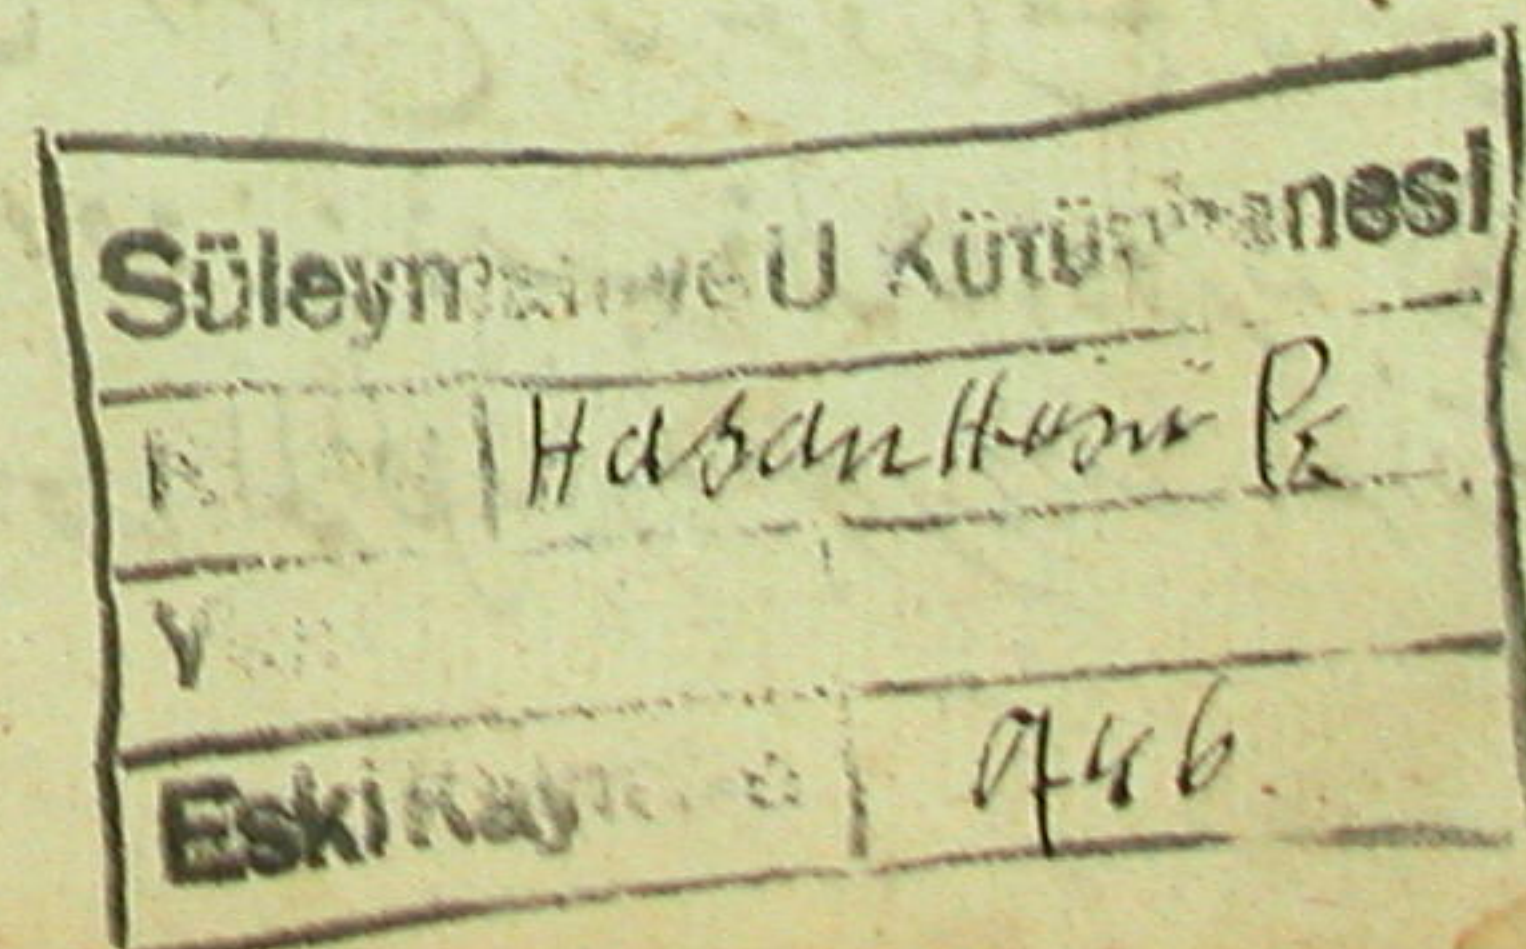 Süleymaniye U Kütüphanesi
Hasan Hüsnü Pş
Eski Kayıt No 746